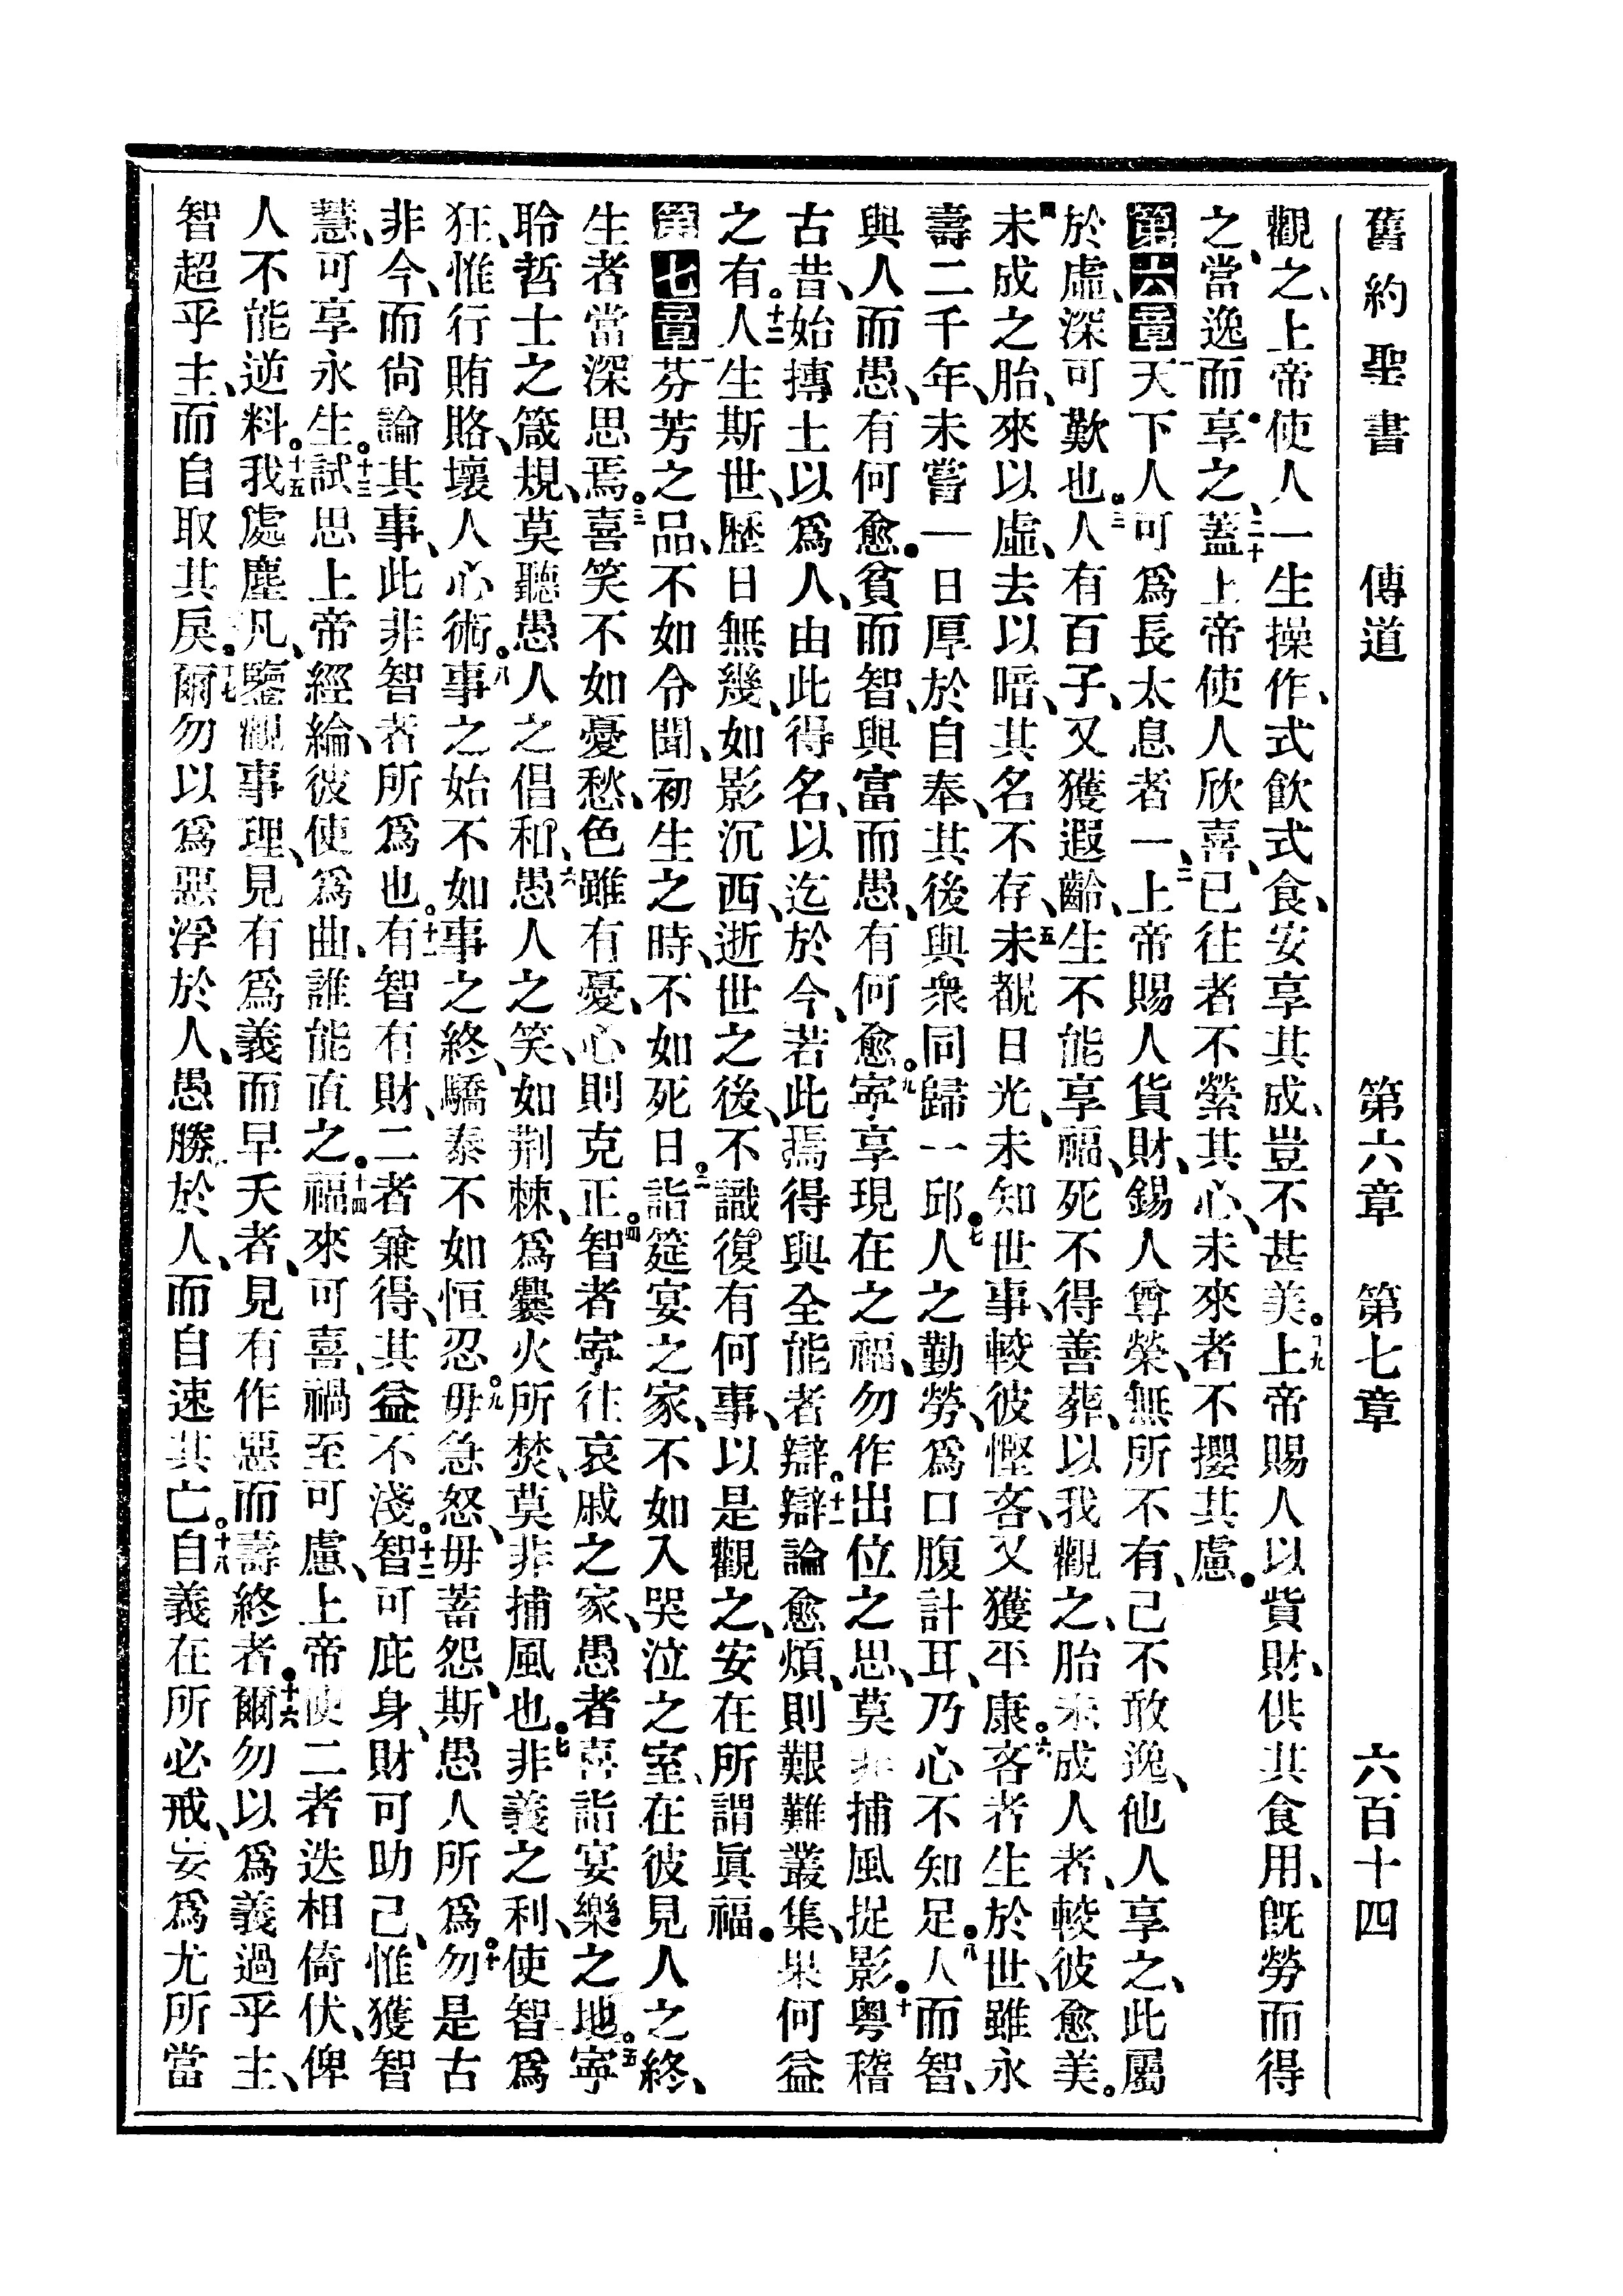 舊約聖書 傳道 第六章 第七章 六百十四
觀之、上帝使人一生操作、式飮式食、安享其成、豈不甚美。十九上帝賜人以貲財、供其食用、既勞而得
之、當逸而享之、二十蓋上帝使人欣喜、已往者不縈其心、未來者不攖其慮。
第六章 一天下人可爲長太息者一、二上帝賜人貨財、錫人尊榮、無所不有、己不敢逸、他人享之、此屬
於虛、深可歎也。三人有百子、又獲遐齡、生不能享福、死不得善葬、以我觀之、胎未成人者、較彼愈美。
四未成之胎、來以虛、去以暗、其名不存、五未覩日光、未知世事、較彼慳吝、又獲平康。六吝者生於世、雖永
壽二千年、未嘗一日厚於自奉、其後與衆同歸一邱。七人之勤勞、爲口腹計耳、乃心不知足。八人而智、
與人而愚、有何愈。貧而智、與富而愚、有何愈。九寧享現在之福、勿作出位之思、莫非捕風捉影。十粤稽
古昔、始摶土以爲人、由此得名、以迄於今、若此焉得與全能者辯。十一辯論愈煩、則艱難叢集、果何益
之有。十二人生斯世、歷日無幾、如影沉西、逝世之後、不識復有何事、以是觀之、安在所謂眞福。
第七章 一芬芳之品、不如令聞、初生之時、不如死日。二詣筵宴之家、不如入哭泣之室、在彼見人之終、
生者當深思焉。三喜笑不如憂愁、色雖有憂、心則克正。四智者寧往哀戚之家、愚者喜詣宴樂之地。五寧
聆哲士之箴規、莫聽愚人之倡和、六愚人之笑、如荆棘、爲爨火所焚、莫非捕風也。七非義之利、使智爲
狂、惟行賄賂、壞人心術。八事之始不如事之終、驕泰不如恒忍。九毋急怒、毋蓄怨、斯愚人所爲。十勿是古
非今、而尙論其事、此非智者所爲也。十一有智有財、二者兼得、其益不淺。十二智可庇身、財可助己、惟獲智
慧、可享永生。十三試思上帝經綸、彼使爲曲、誰能直之。十四福來可喜、禍至可慮、上帝使二者迭相倚伏、俾
人不能逆料。十五我處塵凡、鑒觀事理、見有爲義而早夭者、見有作惡而壽終者。十六爾勿以爲義過乎主、
智超乎主、而自取其戾。十七爾勿以爲惡浮於人、愚勝於人、而自速其亡。十八自義在所必戒、妄爲尤所當